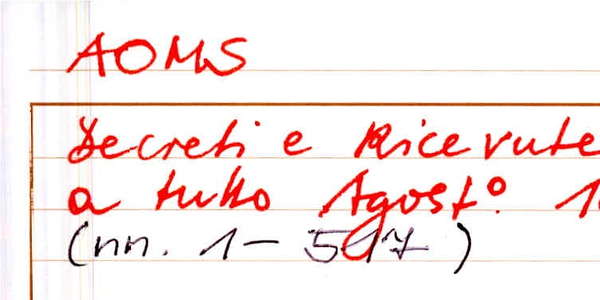 AOMS
Decreti e Ricevute
a tutto Agosto. 1
(nn. 1 – 517)